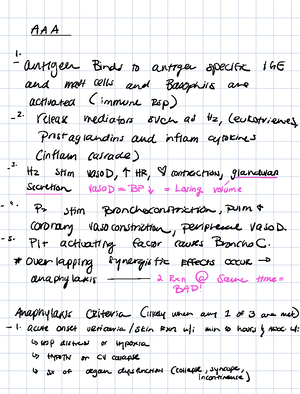 AAA
1.
- antigen Binds to antigen specific IGE
and mast cells and Basophils are
activated (immune Rsp)
-2. release mediators such as H2, (leukotrienes,
Prostaglandins and inflam cytokines
(inflam cascade)
-3. H2 stim vasoD, ↑ HR, ♡ contraction, glandular
Secretion vasoD = BP ↓ = Losing volume
-4. P2 stim Bronchoconstriction, pulm &
coronary vasoconstriction, peripheral vasoD.
-5. Plt activating factor causes BronchoC.
* Overlapping synergistic effects occur →
anaphylaxis —— 2 Rxn @ Same time =
BAD!
Anaphylaxis Criteria (likely when any 1 of 3 are met)
-1. acute onset urticaria / skin Rxn w/i min to hours &
↳ RSP distress or Hypoxia
↳ HypoTN or CV collapse
↳ Sx of organ dysfunction (collapse, syncope,
incontinence)